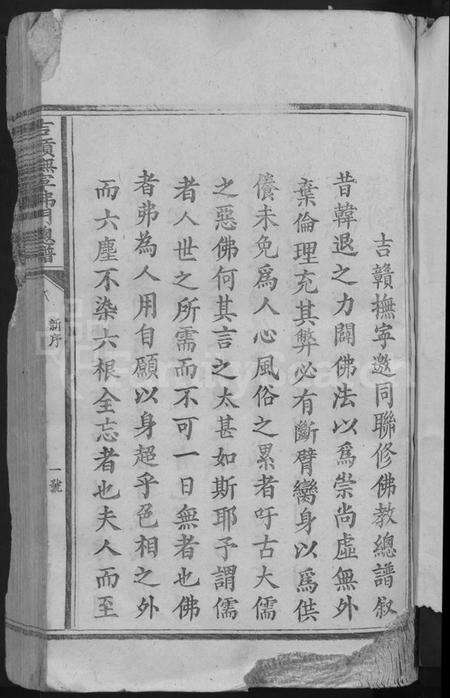 吉贛撫寧邀同聯修佛教總譜叙
昔韓退之力闢佛法以爲崇尚虛無外
棄倫理充其弊必有斷臂臠身以爲供
儐未免爲人心風俗之累者吁古大儒
之惡佛何其言之太甚如斯耶予謂儒
者人世之所需而不可一日無者也佛
者弗為人用自願以身超乎色相之外
而六塵不染六根全忘者也夫人而至
吉贛撫寧佛門總譜
新序
一號